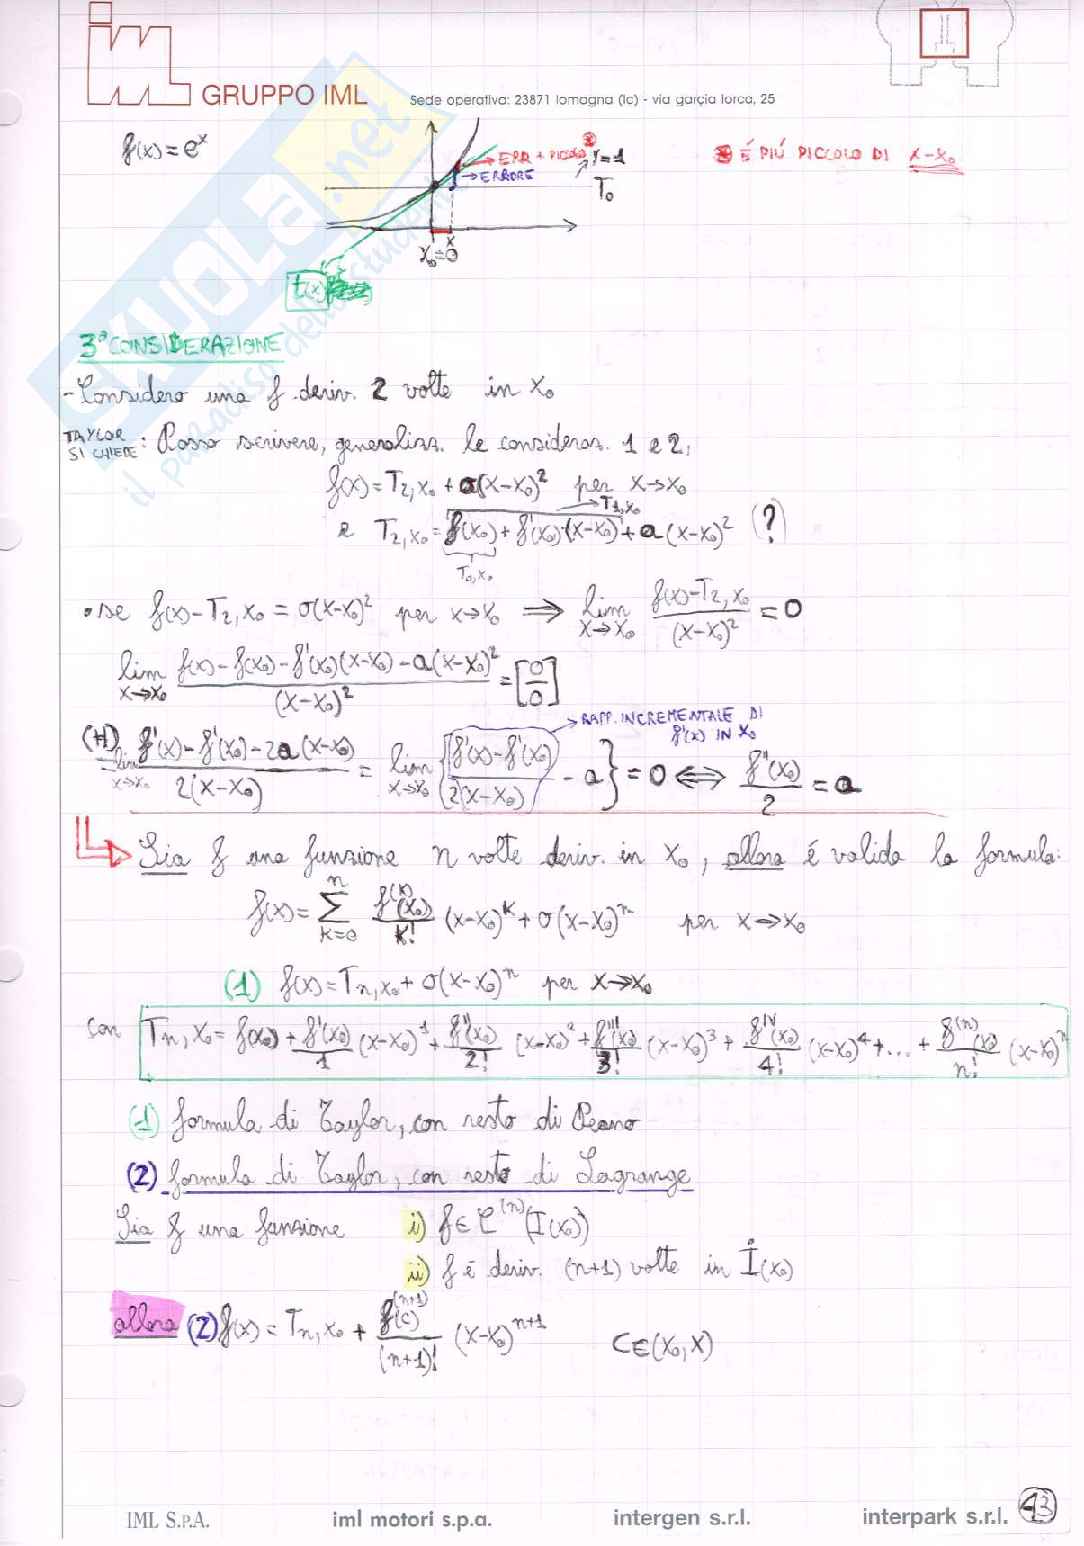 iml GRUPPO IML Sede operativa: 23871 lomagna (lc) - via garçia lorca, 25
f(x)=e^x
→ERR + PICCOLO ⊛
→ERRORE
Y=1
T₀
⊛ É PIÚ PICCOLO DI x-x₀
x₀=0 x
t(x)
3ª CONSIDERAZIONE
-Considero una f deriv. 2 volte in x₀
TAYLOR SI CHIEDE: Posso scrivere, generalizz. le consideraz. 1 e 2,
f(x)=T₂,x₀ + o(x-x₀)² per x→x₀
→T₁,x₀
e T₂,x₀ = f(x₀) + f'(x₀)·(x-x₀) + a(x-x₀)² (?)
T₀,x₀
•se f(x)-T₂,x₀ = o(x-x₀)² per x→x₀ ⟹ lim x→x₀ (f(x)-T₂,x₀)/(x-x₀)² = 0
lim x→x₀ (f(x)-f(x₀)-f'(x₀)(x-x₀)-a(x-x₀)²)/(x-x₀)² = [0/0]
→RAPP. INCREMENTALE DI f'(x) IN x₀
(H)= lim x→x₀ (f'(x)-f'(x₀)-2a(x-x₀))/2(x-x₀) = lim x→x₀ {(f'(x)-f'(x₀))/2(x-x₀) - a} = 0 ⟺ f''(x₀)/2 = a
Sia f una funzione n volte deriv. in x₀, allora é valida la formula:
f(x)= ∑ⁿ k=0 f^(k)(x₀)/k! (x-x₀)^k + o(x-x₀)^n per x→x₀
(1) f(x)=Tn,x₀ + o(x-x₀)^n per x→x₀
con Tn,x₀ = f(x₀) + f'(x₀)/1 (x-x₀)^1 + f''(x₀)/2! (x-x₀)² + f'''(x₀)/3! (x-x₀)³ + f^IV(x₀)/4! (x-x₀)⁴ + ... + f^(n)(x₀)/n! (x-x₀)^n
(1) formula di Taylor, con resto di Peano
(2) formula di Taylor, con resto di Lagrange
Sia f una funzione i) f∈C^(n)(I(x₀))
ii) f é deriv. (n+1) volte in I̊(x₀)
allora (2) f(x)=Tn,x₀ + f^(n+1)(c)/(n+1)! (x-x₀)^n+1 C∈(x₀,x)
43
IML S.P.A. iml motori s.p.a. intergen s.r.l. interpark s.r.l.
SKUOLA.net
il paradiso dello studente